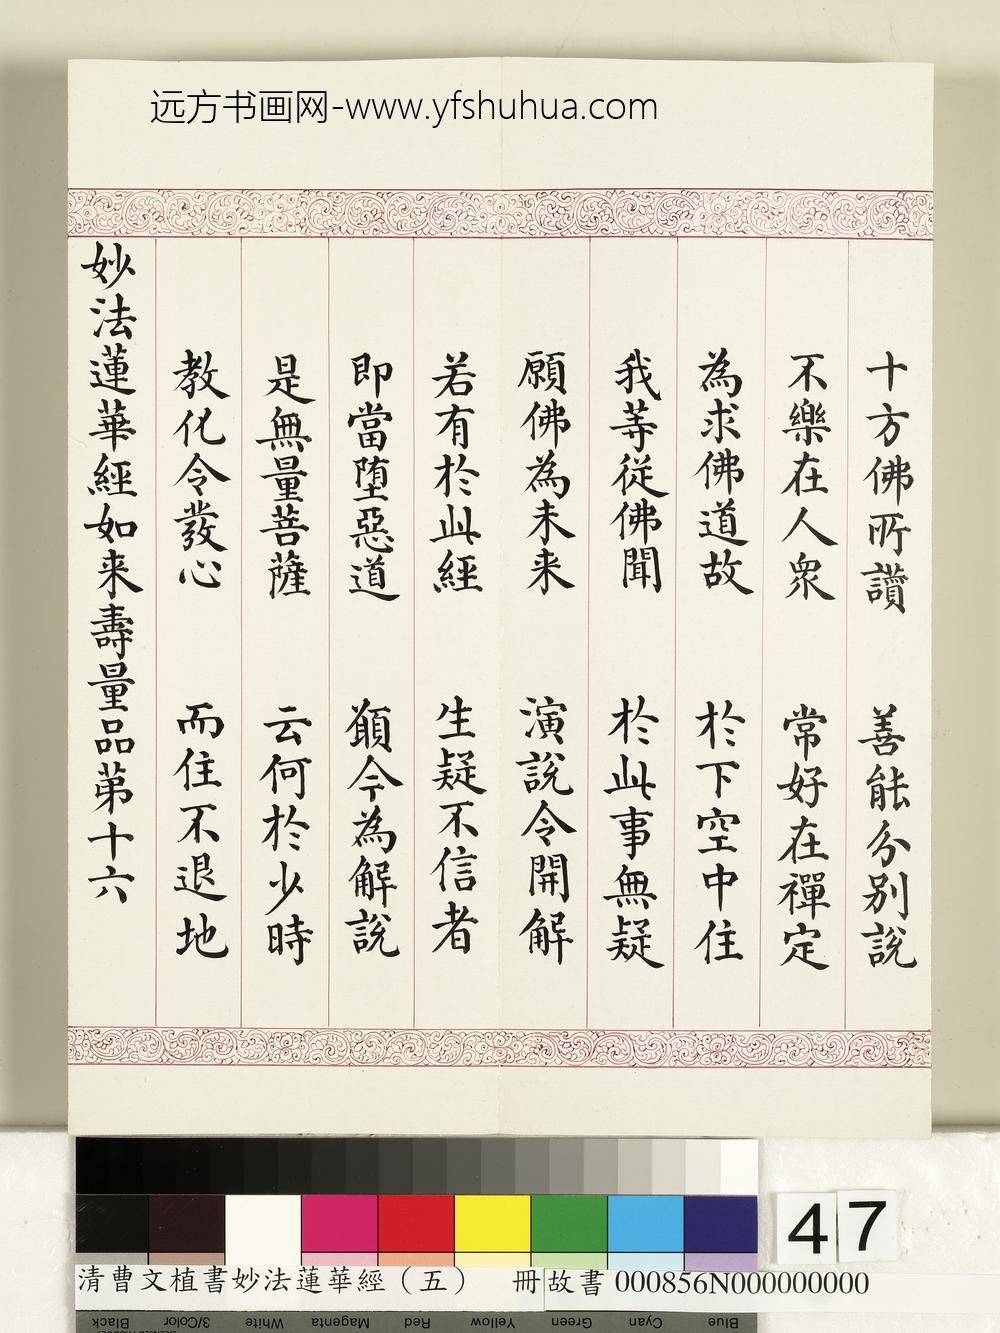 远方书画网-www.yfshuhua.com
十方佛所讚　善能分別說
不樂在人衆　常好在禪定
為求佛道故　於下空中住
我等從佛聞　於此事無疑
願佛為未来　演說令開解
若有於此經　生疑不信者
即當堕惡道　願今為解說
是無量菩薩　云何於少時
教化令發心　而住不退地
妙法蓮華經如来壽量品苐十六
47
清曹文植書妙法蓮華經（五）　冊 故書 000856N000000000
Black 3/Color White Magenta Red Yellow Green Cyan Blue